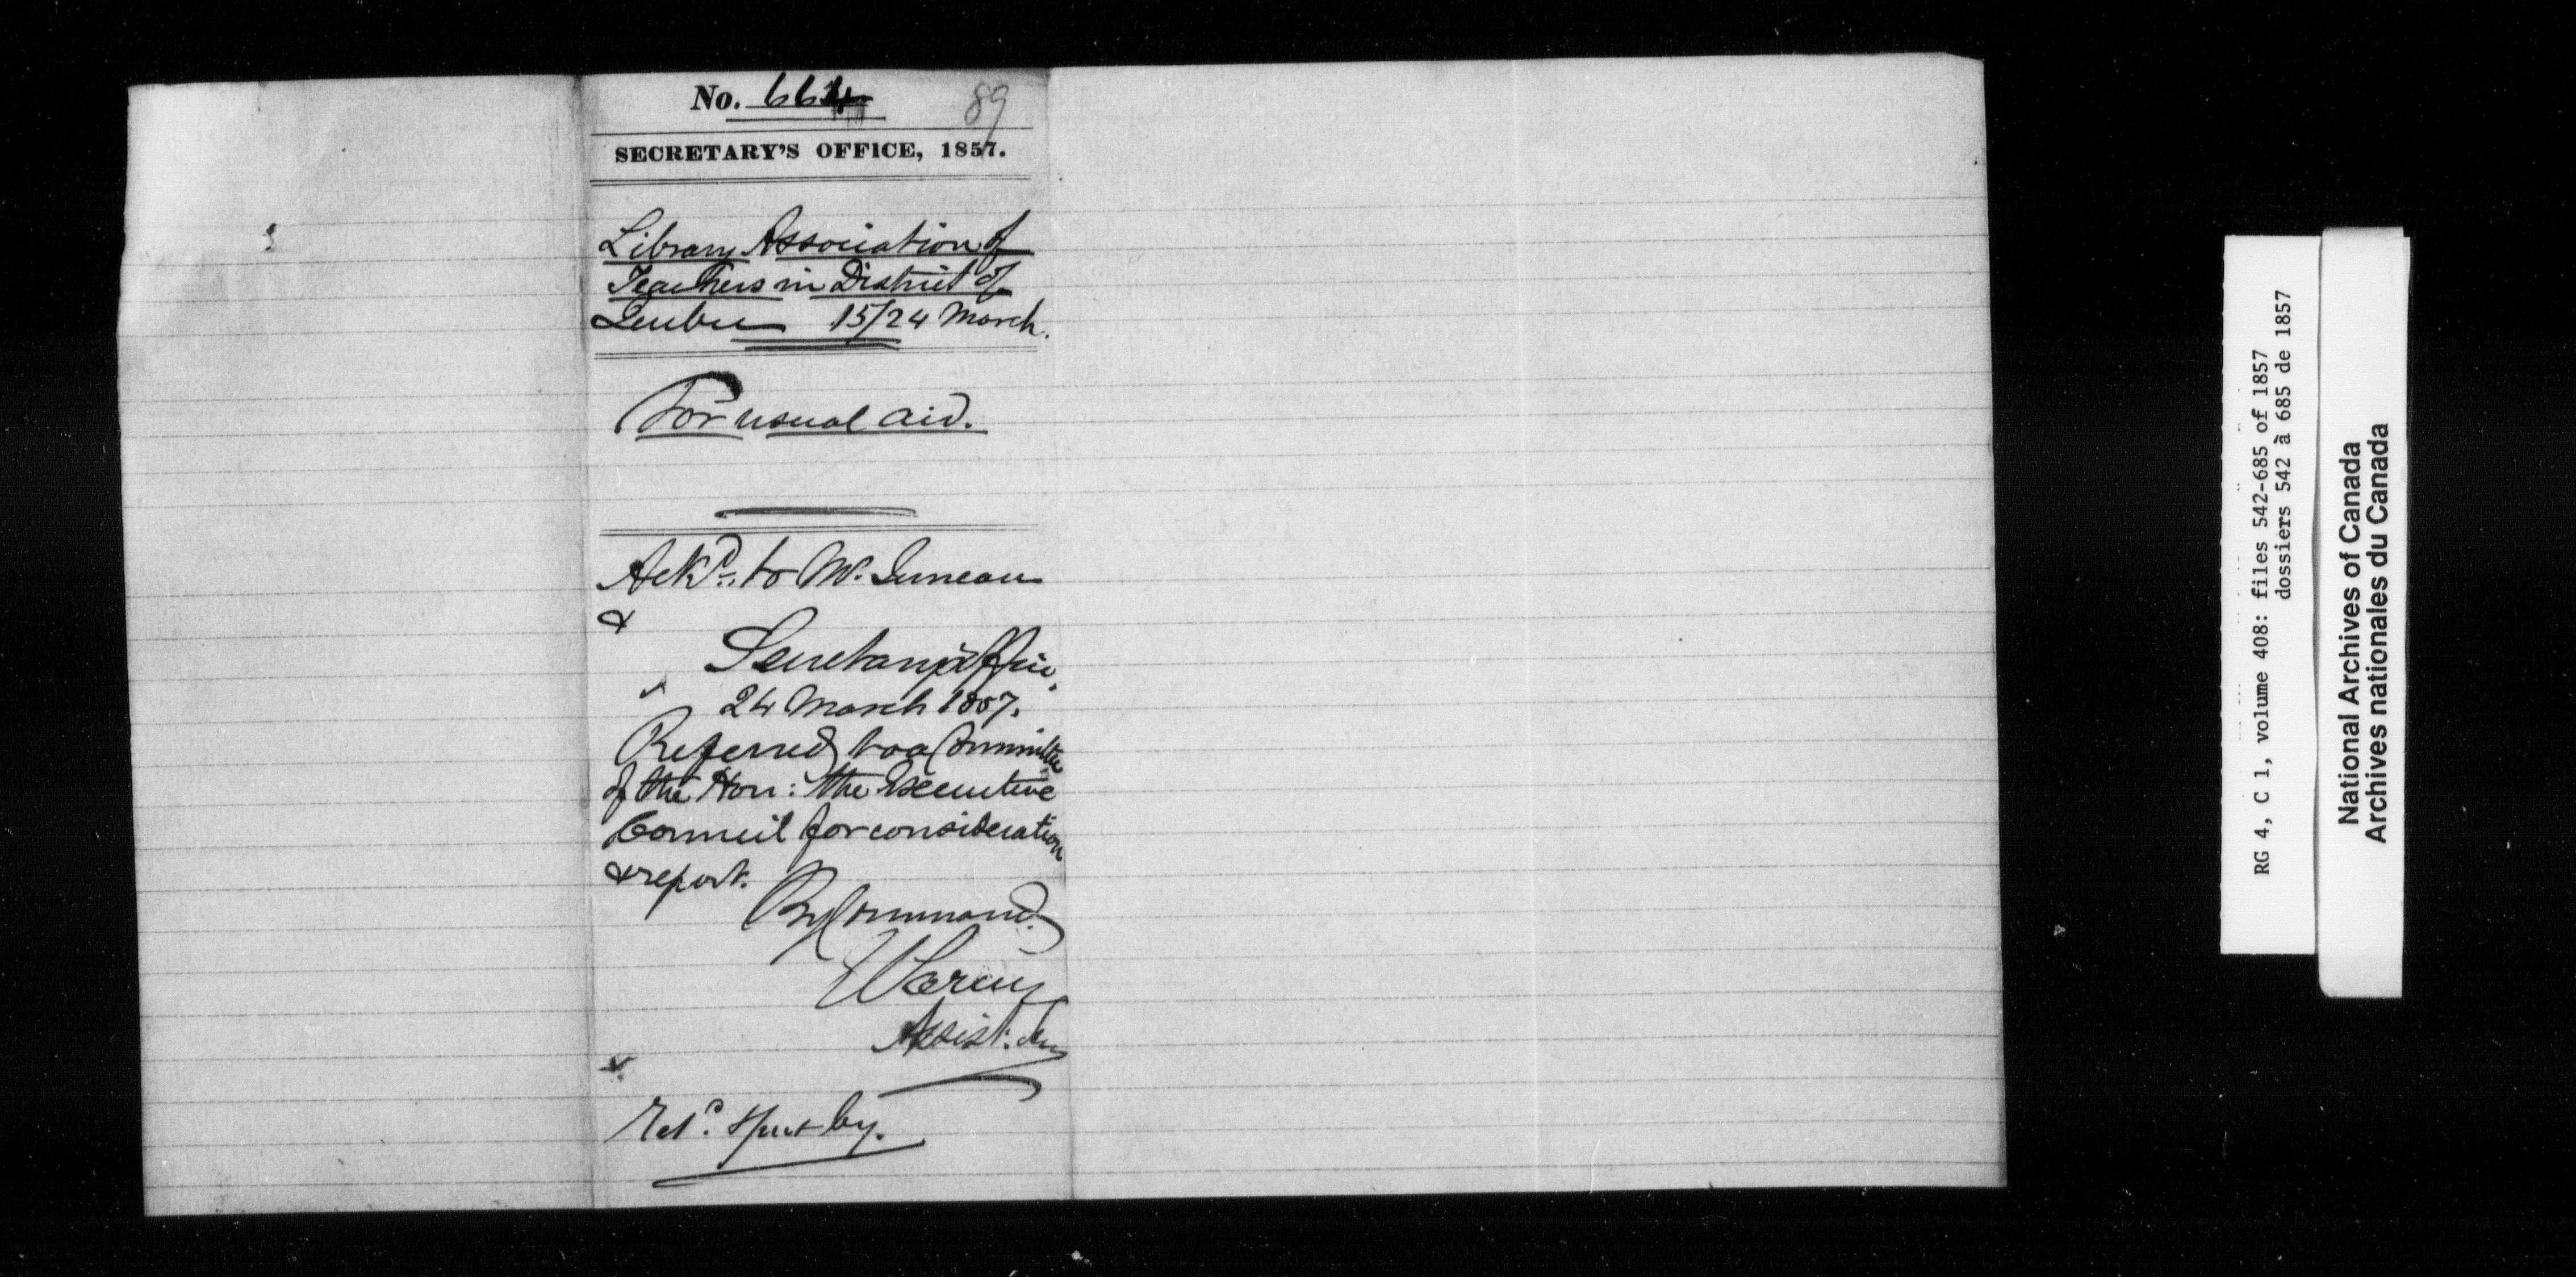 No. 664
89
SECRETARY'S OFFICE, 1857.
Library Association of
Teachers in District of
Quebec 15/24 March.
For usual aid.
Ackd. to Mr. Juneau
&
Secretary's Office,
24 March 1857.
Referred to a Committee
of the Hon: the Executive
Council for consideration
& report.
By Command.
Assist. Secy
by.
RG 4, C 1, volume 408: files 542-685 of 1857
dossiers 542 à 685 de 1857
National Archives of Canada
Archives nationales du Canada